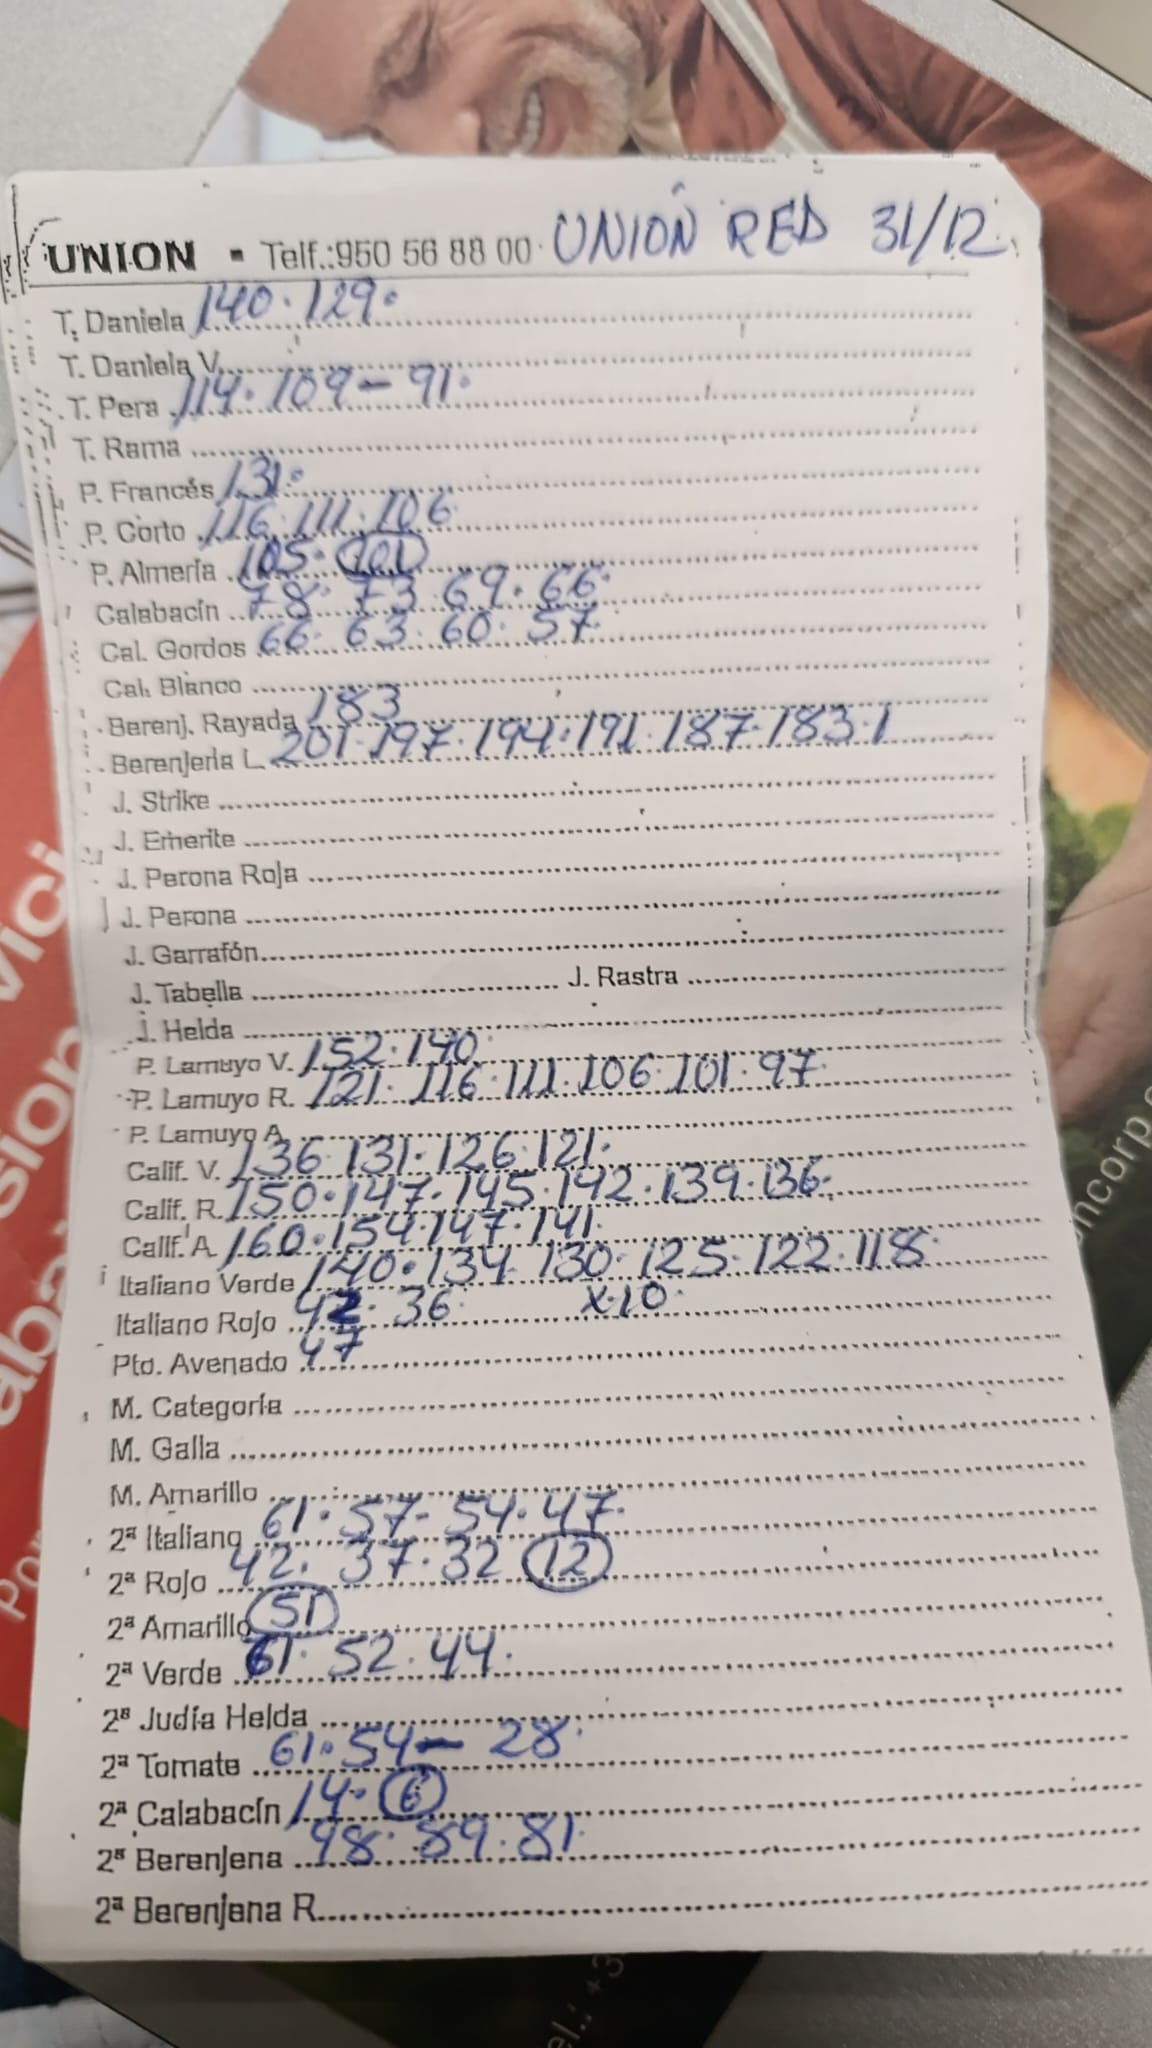 UNION ▪ Telf.:950 56 88 00 UNIÓN RED 31/12
T. Daniela 140. 129.
T. Daniela V.
T. Pera 114. 109 - 91.
T. Rama
P. Francés 131.
P. Corto 116. 111. 106
P. Almería 105. 101
Calabacín 78. 73. 69. 66.
Cal. Gordos 66. 63. 60. 57.
Cal. Blanco
Berenj. Rayada 183
Berenjena L. 201. 197. 194. 191. 187. 183. 1
J. Strike
J. Emerite
J. Perona Roja
J. Perona
J. Garrafón
J. Tabella J. Rastra
J. Helda
P. Lamuyo V. 152. 140.
P. Lamuyo R. 121. 116. 111. 106. 101. 97.
P. Lamuyo A.
Calif. V. 136. 131. 126. 121.
Calif. R. 150. 147. 145. 142. 139. 136.
Calif. A 160. 154. 147. 141.
Italiano Verde 140. 134. 130. 125. 122. 118.
Italiano Rojo 42. 36. x.10.
Pto. Avenado 47
M. Categoría
M. Galia
M. Amarillo
2ª Italiano 61. 57. 54. 47.
2ª Rojo 42. 37. 32 12
2ª Amarillo 51
2ª Verde 61. 52. 44.
2ª Judía Helda
2ª Tomate 61. 54 - 28.
2ª Calabacín 14. 6
2ª Berenjena 98. 89. 81.
2ª Berenjena R.